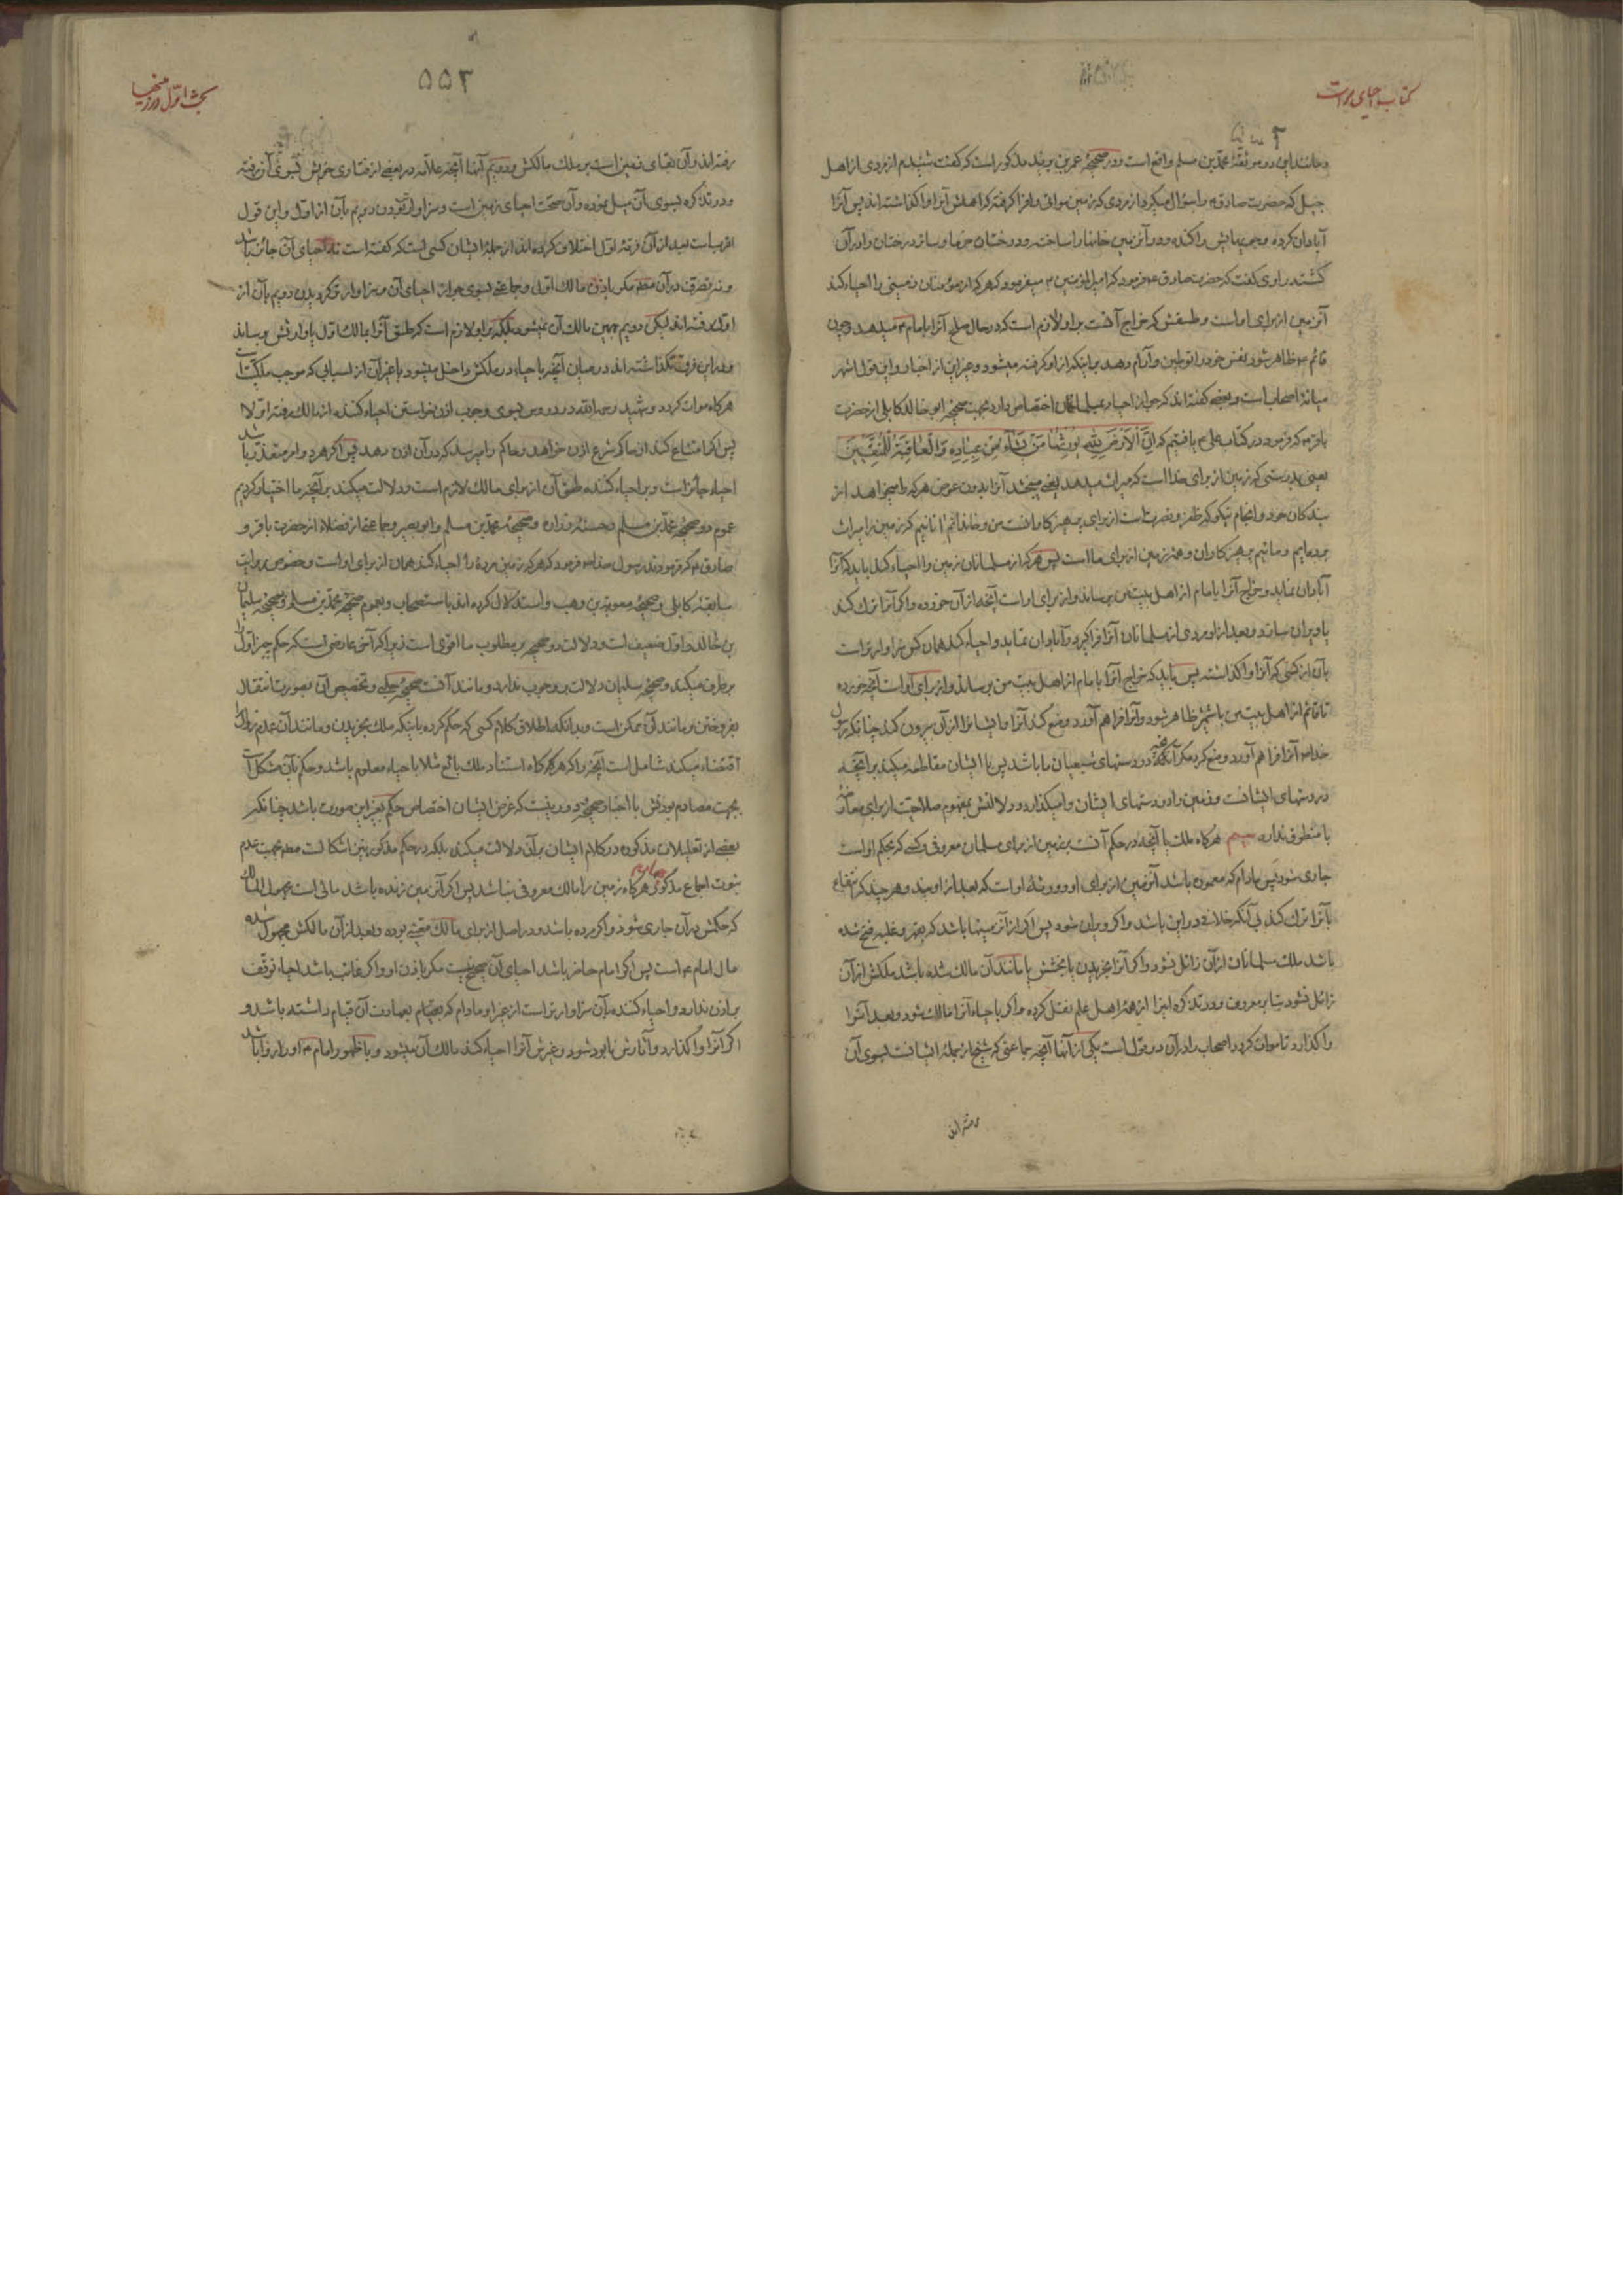 کتاب احیای موات
و مانند این دو موثقهٔ محمد بن مسلم واقع است و در صحیحهٔ عمر بن یزید مذکور است که گفت شنیدم از مردی از اهل
جبل که حضرت صادق ع را سؤال میکرد از مردی که زمین مواتی را فرا گرفته که اهلش آنرا واگذاشته اند پس آنرا
آبادان کرده و در آنزمین خانها را ساخته و درختان خرما و سائر درختان را در آن
کشته راوی گفت که حضرت صادق ع فرمود که امیرالمؤمنین ع میفرمود که هر که از مؤمنان زمینی را احیاء کند
آنزمین از برای او است و طسقش که خراج آنست بر او لازم است که در حال صلح آنرا بامام ع میدهد و چون
قائم ع ظاهر شود نفس خود را توطین و آرام دهد بر اینکه از او گرفته میشود و غیر این از اخبار و این قول اشهر
میانهٔ اصحاب است و بعضی گفته اند که جواز احیاء بمسلمانان اختصاص دارد بجهت صحیحهٔ ابو خالد کابلی از حضرت
باقر ع که فرمود در کتاب علی ع یافتیم که اِنَّ الْاَرْضَ لِلّٰهِ یُورِثُهَا مَنْ یَشَآءُ مِنْ عِبَادِهِ وَالْعَاقِبَةُ لِلْمُتَّقِینَ
یعنی بدرستی که زمین از برای خدا است که میراث میدهد یعنی میبخشد آنرا بدون عوض هر که را میخواهد از
بندگان خود و انجام نیکو که ظفر و نصرت است از برای پرهیزکارانست من و خاندانم آنانیم که زمین را میراث
برده ایم و مائیم پرهیزکاران و همهٔ زمین از برای ما است پس هر که از مسلمانان زمین را احیاء کند باید که آنرا
آبادان نماید و خراج آنرا بامام از اهل بیت من برساند و از برای او است آنچه از آن خورده و اگر آنرا ترک کند
یا ویران سازد و بعد از او مردی از مسلمانان آنرا فرا گیرد و آبادان نماید و احیاء کند همان کس سزاوارتر است
بآن از کسی که آنرا واگذاشته پس باید که خراج آنرا بامام از اهل بیت من برساند و از برای او است آنچه خورده
تا قائم از اهل بیت من با شمشیر ظاهر شود و آنرا فراهم آورد و منع کند آنرا و ایشانرا از آن بیرون کند چنانکه رسول
خدا ص آنرا فراهم آورد و منع کرد مگر آنچه در دستهای شیعیان ما باشد پس با ایشان مقاطعه میکند بر آنچه
در دستهای ایشانست و زمین را در دستهای ایشان وامیگذارد و دلالتش بمفهوم صلاحیت از برای معارضهٔ
با منطوق ندارد سیم هرگاه ملک یا آنچه در حکم آنست بر زمین از برای مسلمان معروفی و کسی که بحکم او است
جاری شود پس مادام که معموره باشد آنزمین از برای او و ورثهٔ او است که بعد از او بیند و هر چند که انتفاع
بآنرا ترک کند بی آنکه خلافی در این باشد و اگر ویران شود پس اگر از آن زمینها باشد که بقهر و غلبه فتح شده
باشد ملک مسلمانان از آن زائل نشود و اگر آنرا بخریدن یا بخشش یا مانند آن مالک شده باشد ملکش از آن
زائل نشود بنا بر معروف و در تذکره اینرا از همهٔ اهل علم نقل کرده و اگر باحیاء آنرا مالک شود و بعد آنرا
واگذارد تا موات گردد اصحاب را در آن دو قول است یکی از آنها آنچه جماعتی که شیخ از جملهٔ ایشانست بسوی آن
رفته اند
بحث اول در زمینها
۵۵۲
رفته اند و آن بقای زمین است بر ملک مالکش و دویم آنها آنچه علامه در بعضی از فتاوی خویش بسوی آن رفته
و در تذکره بسوی آن میل نموده و آن صحت احیای زمین است و سزاوارتر بودن دویم بآن از اول و این قول
اقربست بعد از آن فرقهٔ اول اختلاف کرده اند از جملهٔ ایشان کسی است که گفته است نه احیای آن جائز باشد
و نه تصرف در آن مگر باذن مالک اول و جماعتی بسوی جواز احیای آن و سزاوارتر گردیدن دویم بآن از
اول رفته اند لیکن دویم بهمین مالک آن نمیشود بلکه بر او لازم است که طسق آنرا بمالک اول یا وارثش برساند
و در این فرق نگذاشته اند در میان آنچه باحیاء در ملکش داخل میشود یا بغیر آن از اسبابی که موجب ملکیت است
هرگاه موات گردد و شهید رحمه الله در دروس بسوی وجوب اذن خواستن احیاء کننده از مالک رفته اولا
پس اگر امتناع کند از حاکم شرع اذن خواهد و حاکم را میرسد که در آن اذن دهد پس اگر هر دو امر متعذر باشد
احیاء جائز است و بر احیاء کننده طسق آن از برای مالک لازم است و دلالت میکند بر آنچه ما اختیار کردیم
عموم دو صحیحهٔ محمد بن مسلم و حسنهٔ زراره و صحیحهٔ محمد بن مسلم و ابو بصیر و جماعتی از فضلاء از حضرت باقر و
صادق ع که فرمودند رسول خدا ص فرمود که هر که زمین مردهٔ را احیاء کند همان از برای او است و خصوص روایت
سابقهٔ کابلی و صحیحهٔ معویة بن وهب و استدلال کرده اند باستصحاب و بعموم صحیحهٔ محمد بن مسلم و صحیحهٔ سلیمان
بن خالد و اول ضعیف است و دلالت دو صحیحه بر مطلوب ما اقوی است زیرا که آخر عارضی است که حکم چیز اول را
برطرف میکند و صحیحهٔ سلیمان دلالت بر وجوب ندارد و مانند آنست صحیحهٔ حلبی و تخصیص آن بصورت انتقال
بفروختن و مانند آن ممکن است و بدانکه اطلاق کلام کسی که حکم کرده باینکه ملک بخریدن و مانند آن عدم زوال را
اقتضاء میکند شامل است آنچه را که هرگاه استناد ملک بائع مثلا باحیاء معلوم باشد و حکم بآن مشکل است
بجهت مصادم بودنش با اخبار صحیحه و دور نیست که غرض ایشان اختصاص حکم بغیر این صورت باشد چنانکه
بعضی از تعلیلات مذکوره در کلام ایشان بر آن دلالت میکند بلکه در حکم مذکور نیز اشکال است بجهت عدم
ثبوت اجماع مذکور چهارم هرگاه زمین را مالک معروفی نباشد پس اگر آنزمین زنده باشد مالی است مجهول المالک
که حکمش در آن جاری شود و اگر مرده باشد و در اصل از برای مالک معینی بوده و بعد از آن مالکش مجهول شده
مال امام ع است پس اگر امام حاضر باشد احیای آن صحیح نیست مگر باذن او و اگر غائب باشد احیاء توقف
بر اذن ندارد و احیاء کننده بآن سزاوارتر است از غیر او مادام که بقیام بعمارت آن قیام داشته باشد و
اگر آنرا واگذارد و آثارش نابود شود و غیرش آنرا احیاء کند مالک آن میشود و با ظهور امام ع او را روا باشد